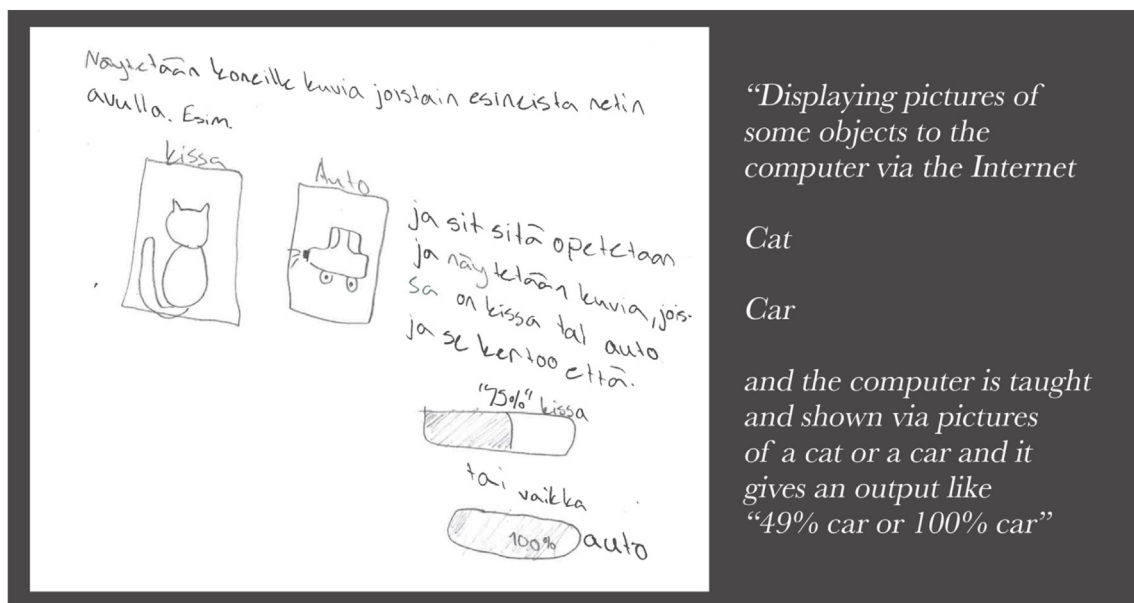 Näytetään koneille kuvia joistain esineistä netin
avulla. Esim.
kissa
Auto
ja sit sitä opetetaan
ja näytetään kuvia, jois-
sa on kissa tai auto
ja se kertoo että.
"75%" kissa
tai vaikka
100% auto
“Displaying pictures of
some objects to the
computer via the Internet
Cat
Car
and the computer is taught
and shown via pictures
of a cat or a car and it
gives an output like
“49% car or 100% car”